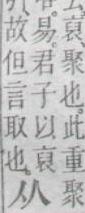 裒聚也。此重聚
易。君子以裒
故但言取也。